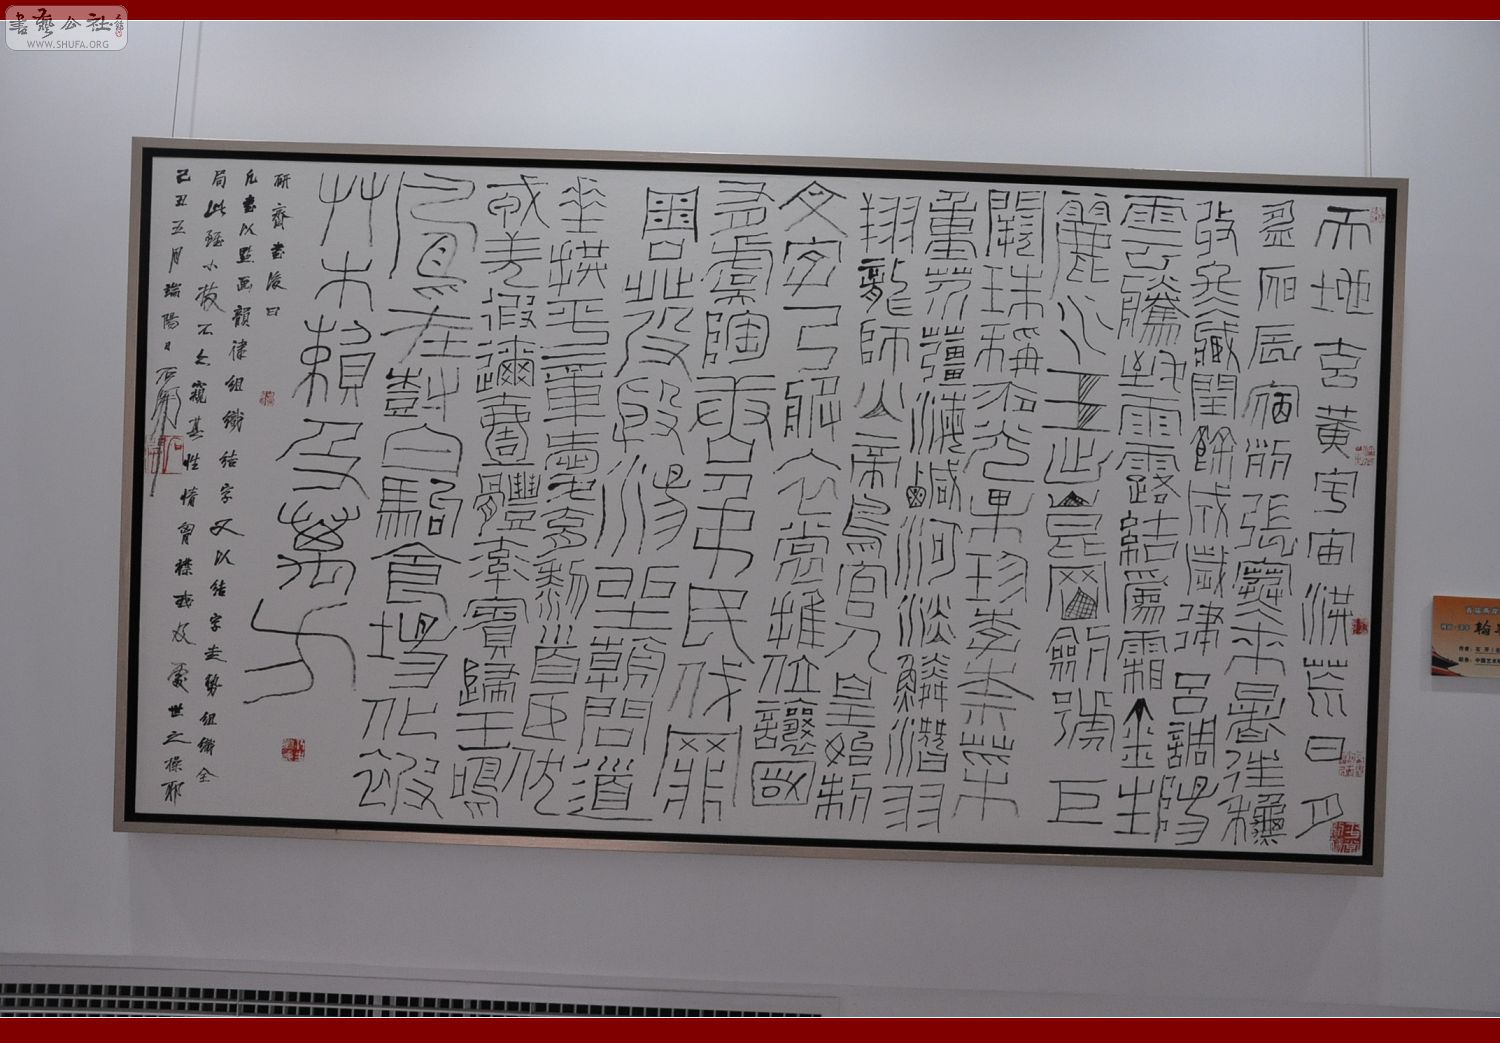 天地玄黃宇宙洪荒日月
盈昃辰宿列張寒來暑往秋
收冬藏閏餘成歲律呂調陽
雲騰致雨露結為霜金生
麗水玉出崑岡劍號巨
闕珠稱夜光果珍李柰菜
重芥薑海鹹河淡鱗潛羽
翔龍師火帝鳥官人皇始制
文字乃服衣裳推位讓國
有虞陶唐弔民伐罪
周發殷湯坐朝問道
垂拱平章愛育黎首臣伏
戎羌遐邇壹體率賓歸王鳴
鳳在樹白駒食場化被
草木賴及萬方
研齋書後曰
凡書以點畫韻律組織結字又以結字走勢組織全
局此強小技不
窺其性情
己丑五月端陽日
書藝公社
WWW.SHUFA.ORG